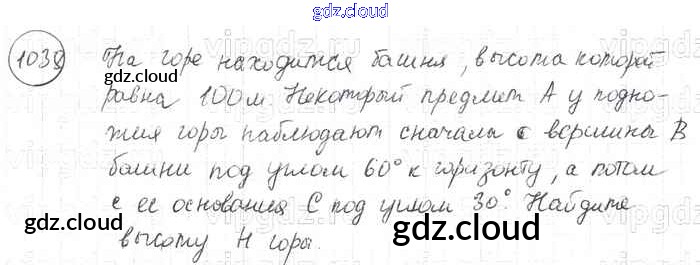 gdz.cloud
1038 На горе находится башня, высота которой
gdz.cloud
равна 100м. Некоторый предмет А у подно-
жия горы наблюдают сначала с вершины В
башни под углом 60° к горизонту, а потом
с ее основания С под углом 30°. Найдите
gdz.cloud
gdz.cloud
высоту Н горы.